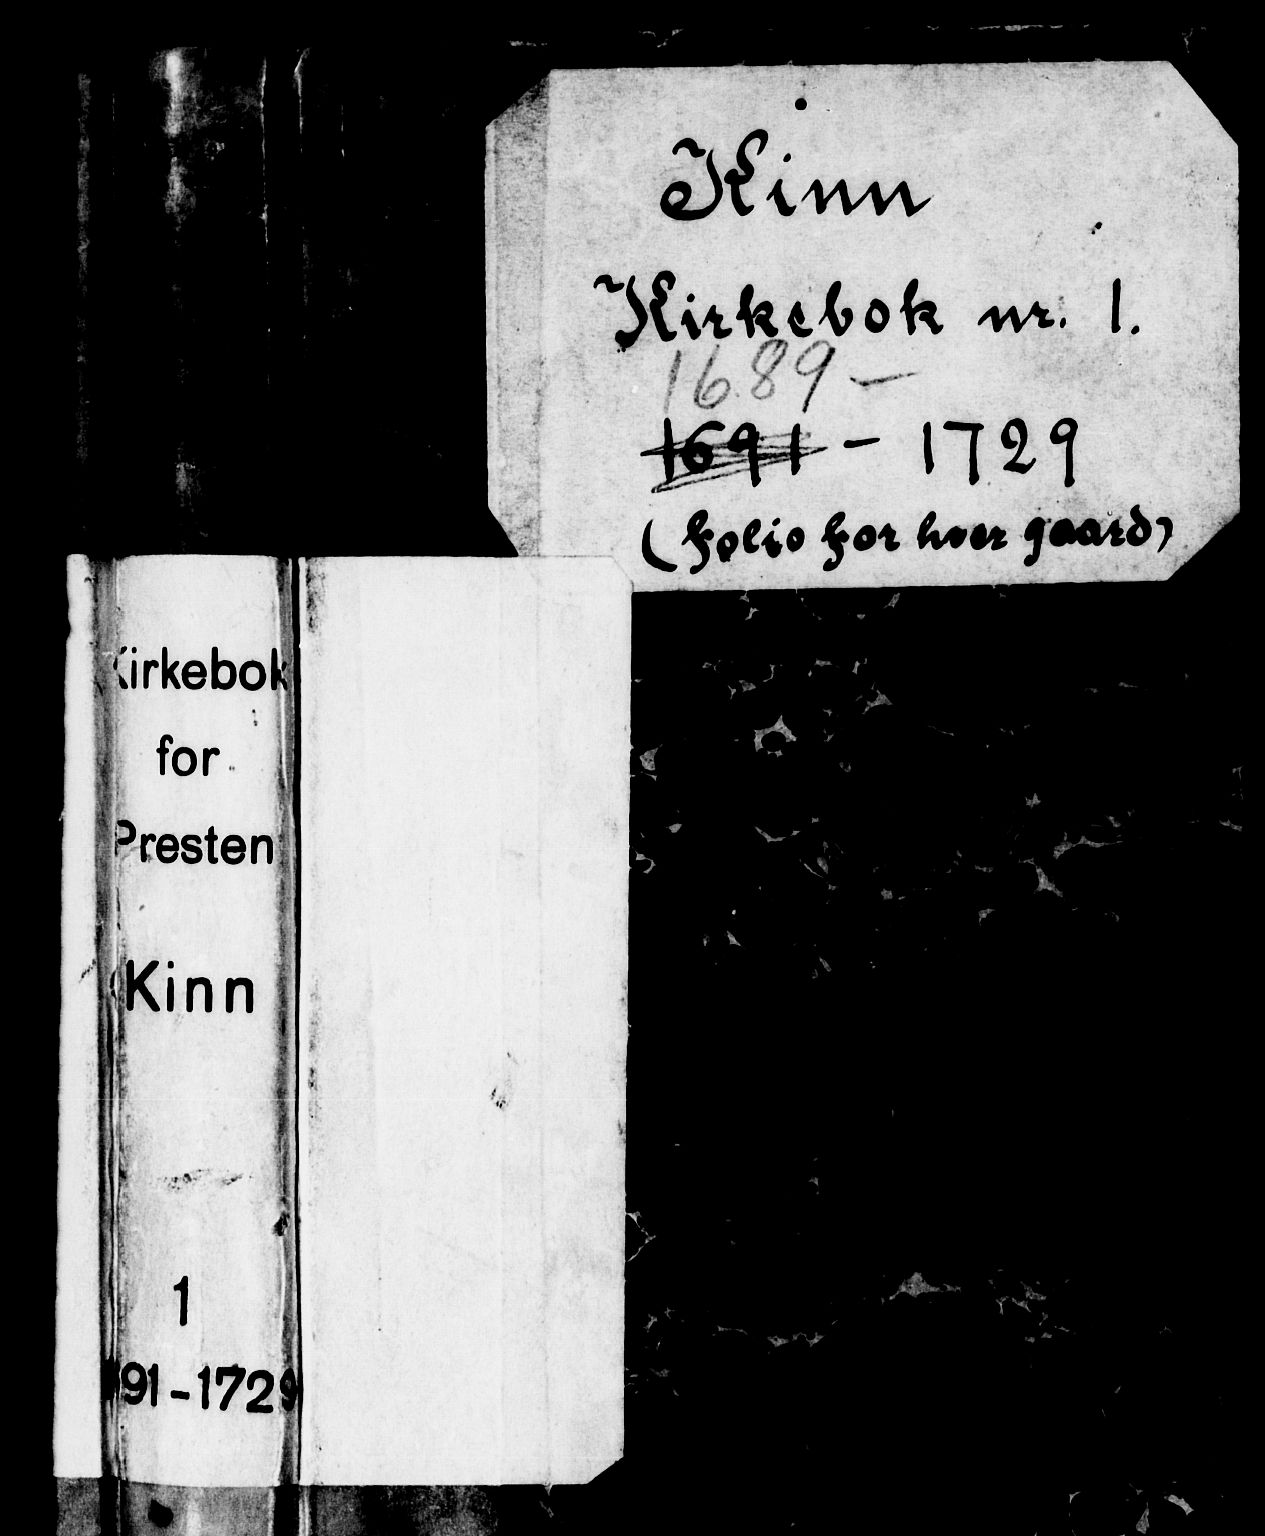 Kinn
Kirkebok nr. 1.
1689 –
1691 – 1729
(folio for hver gaard)
Kirkebok
for
Presten
Kinn
1
91 – 1729